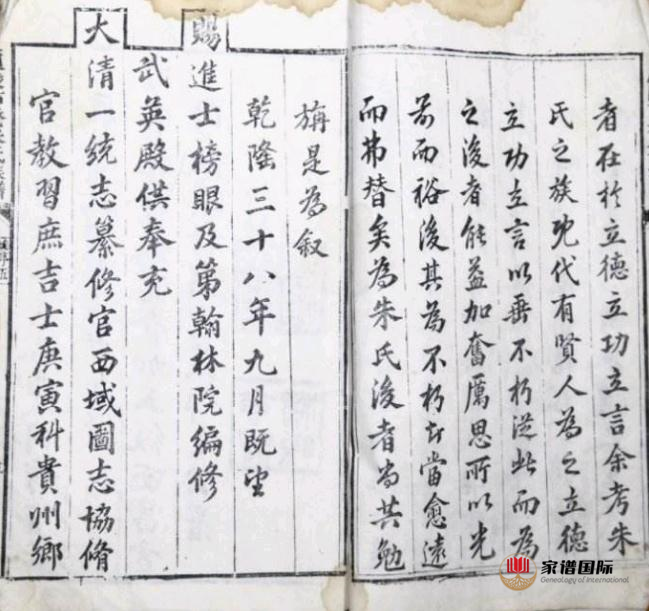 者在於立德立功立言余考朱
氏之族先代有賢人為之立德
立功立言以垂不朽從此而為
之後者能益加奮厲思所以光
前而裕後其為不朽等當愈遠
而弗替矣為朱氏後者尚共勉
旃是為叙
乾隆三十八年九月既望
賜進士榜眼及第翰林院編修
武英殿供奉充
大清一統志纂修官西域圖志協脩
官教習庶吉士庚寅科貴州鄉
家谱国际
Genealogy of International